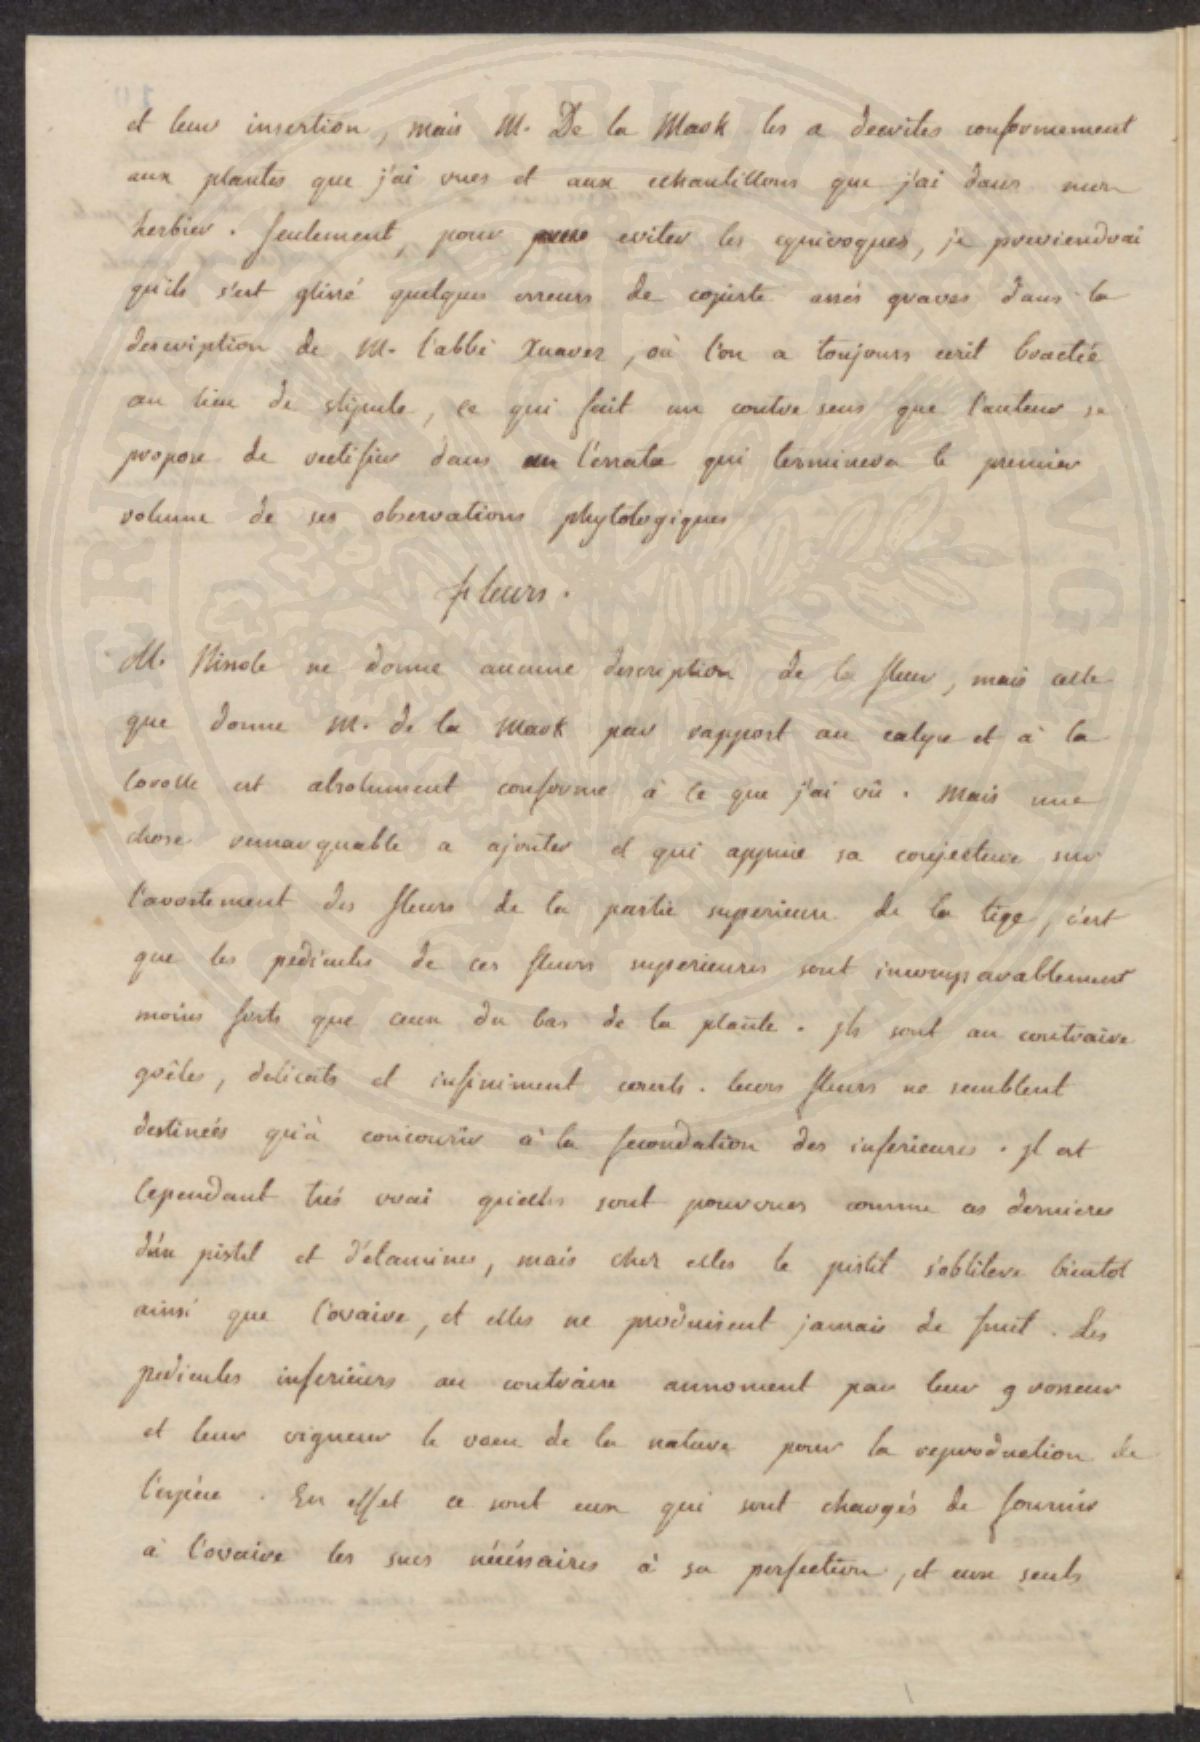 et leur insertion, mais M. De la Mark les a decrites conformement
aux plantes que j'ai vues et aux echantillons que j'ai dans mon
herbier. seulement, pour eviter les equivoques, je previendrai
qu'ils s'est glissé quelques erreurs de copiste assés graves dans la
description de M. l'abbé Xuarez, où l'on a toujours ecrit bractée
au lieu de stipule, ce qui fait un contre sens que l'auteur se
propose de rectifier dans l'errata qui terminera le premier
volume de ses observations phytologiques
fleurs.
M. Nissole ne donne aucune description de la fleur, mais celle
que donne M. de la Mark par rapport au calyce et à la
corolle est absolument conforme à ce que j'ai vû. Mais une
chose remarquable a ajouter et qui appuie sa conjecture sur
l'avortement des fleurs de la partie superieure de la tige, c'est
que les pedicules de ces fleurs superieures sont incomparablement
moins forts que ceux du bas de la plante. jls sont au contraire
grêles, delicats et infiniment courts. leurs fleurs ne semblent
destinées qu'à concourir à la fecondation des inferieures. jl est
cependant trés vrai qu'elles sont pourvues comme ces dernieres
d'un pistil et d'etamines, mais chez elles le pistil s'oblitere bientot
ainsi que l'ovaire, et elles ne produisent jamais de fruit. Les
pedicules inferieurs au contraire annoncent par leur grosseur
et leur vigueur le voeu de la nature pour la reproduction de
l'espéce. En effet ce sont eux qui sont chargés de fournir
à l'ovaire les sucs nécéssaires à sa perfection, et eux seuls